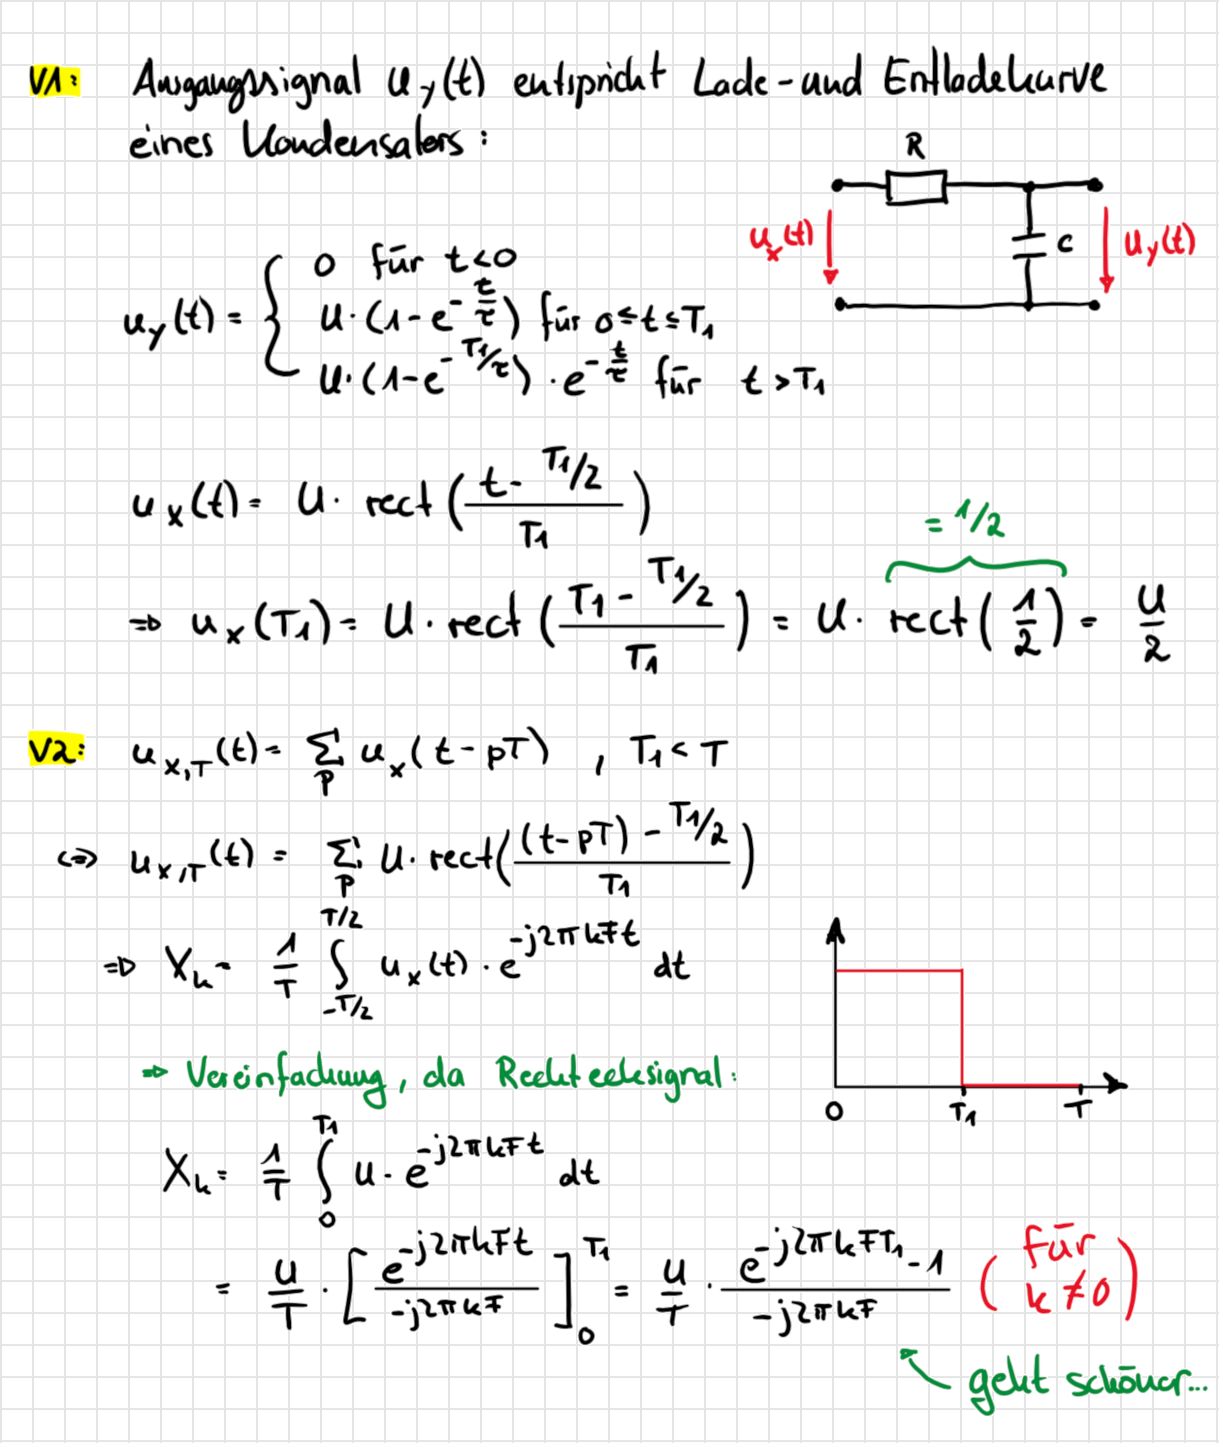 V1: Ausgangssignal u_y(t) entspricht Lade- und Entladekurve
eines Kondensators:
R
u_x(t)
C
u_y(t)
u_y(t) = {
0 für t<0
U·(1-e^{-t/τ}) für 0≤t≤T1
U·(1-e^{-T1/τ})·e^{-t/τ} für t>T1
u_x(t) = U· rect((t-T1/2)/T1)
= 1/2
⇒ u_x(T1) = U·rect((T1-T1/2)/T1) = U· rect(1/2) = U/2
V2: u_{x,T}(t) = Σ_p u_x(t-pT) , T1<T
⇔ u_{x,T}(t) = Σ_p U·rect(((t-pT)-T1/2)/T1)
⇒ X_k = 1/T ∫_{-T/2}^{T/2} u_x(t)·e^{-j2πkFt} dt
⇒ Vereinfachung, da Rechtecksignal:
0 T1 T
X_k = 1/T ∫_0^{T1} U·e^{-j2πkFt} dt
= U/T · [e^{-j2πkFt}/(-j2πkF)]_0^{T1} = U/T · (e^{-j2πkFT1}-1)/(-j2πkF) (für k≠0)
geht schöner...